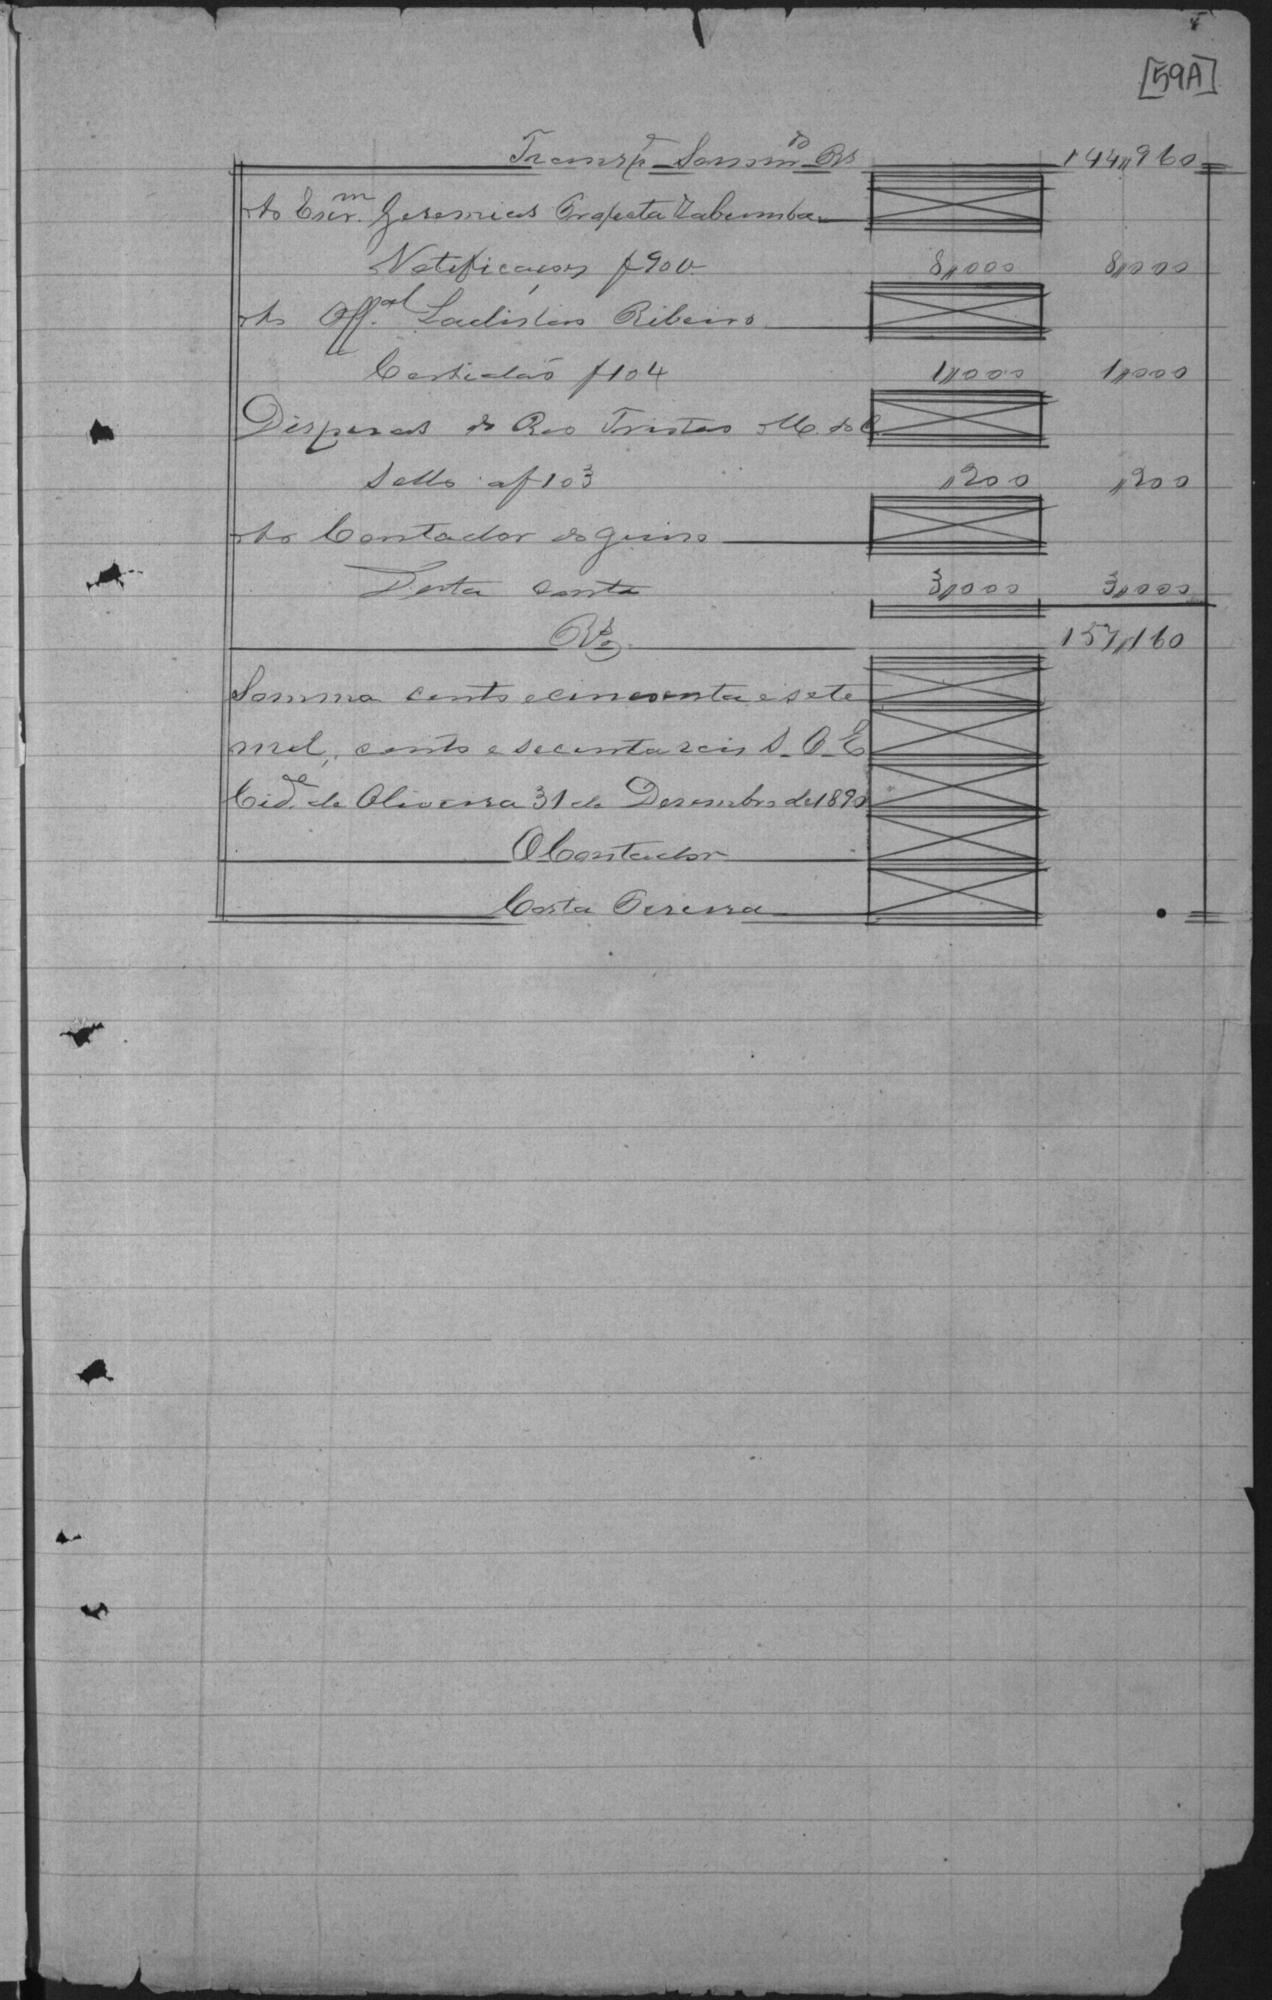 [59A]
Transp.e Somm.do Rs 144,,960
Ao Escr.m Geremias Propeta Zabumba
Notificações f 90 v 8,,000 8,,000
Ao Off.al Ladislau Ribeiro
Certidão f 104 1,,000 1,,000
Dispesas do Reo Tristão M. do C.
Sello af 103 ,,200 ,,200
Ao Contador do Juiso
Desta conta 3,,000 3,,000
Rs. 157,,160
Somma cento e cincoenta e sete
mil, cento e secenta reis S. O. E
Cid.e de Oliveira 31 de Desembro de 1890
O Contador
Costa Pereira